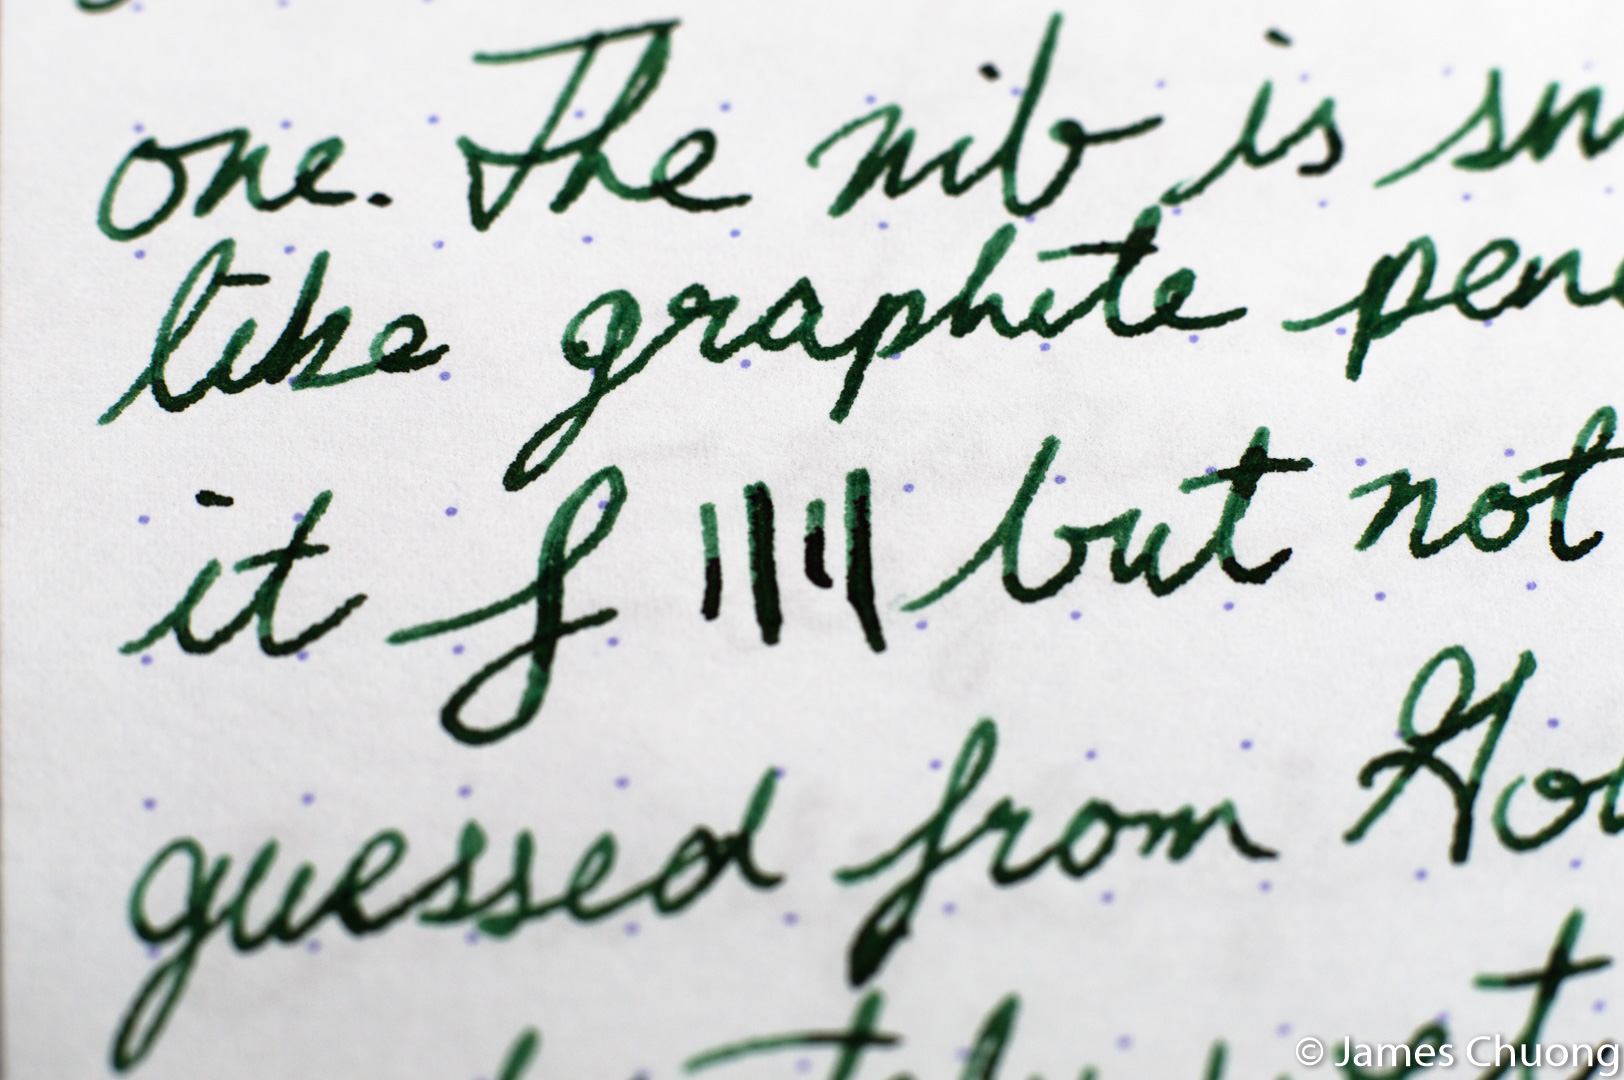 one. The nib is
like graphite
it f |||| but not
guessed from
© James Chuong